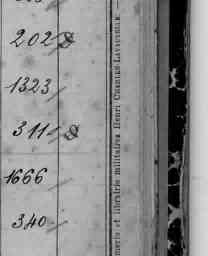 202 D
1323
311 D
1666
340
imerie et librairie militaires Henri CHARLES-LAVAUZELLE. —